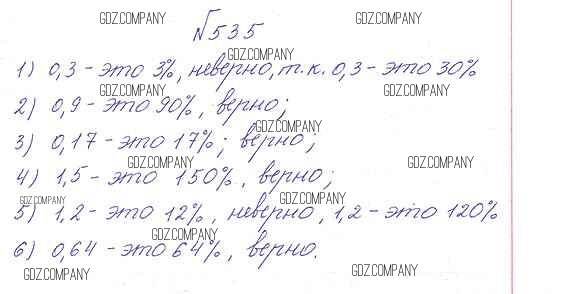 GDZ.COMPANY GDZ.COMPANY
№535
GDZ.COMPANY
1) 0,3 - это 3%, неверно, т.к. 0,3 - это 30%
GDZ.COMPANY GDZ.COMPANY
2) 0,9 - это 90%, верно;
GDZ.COMPANY
3) 0,17 - это 17%; верно;
GDZ.COMPANY GDZ.COMPANY
4) 1,5 - это 150%, верно;
GDZ.COMPANY GDZ.COMPANY
5) 1,2 - это 12%, неверно, 1,2 - это 120%
GDZ.COMPANY
6) 0,64 - это 64%, верно.
GDZ.COMPANY GDZ.COMPANY